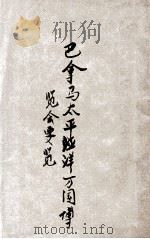 巴拿马太平洋万国博
览会要览